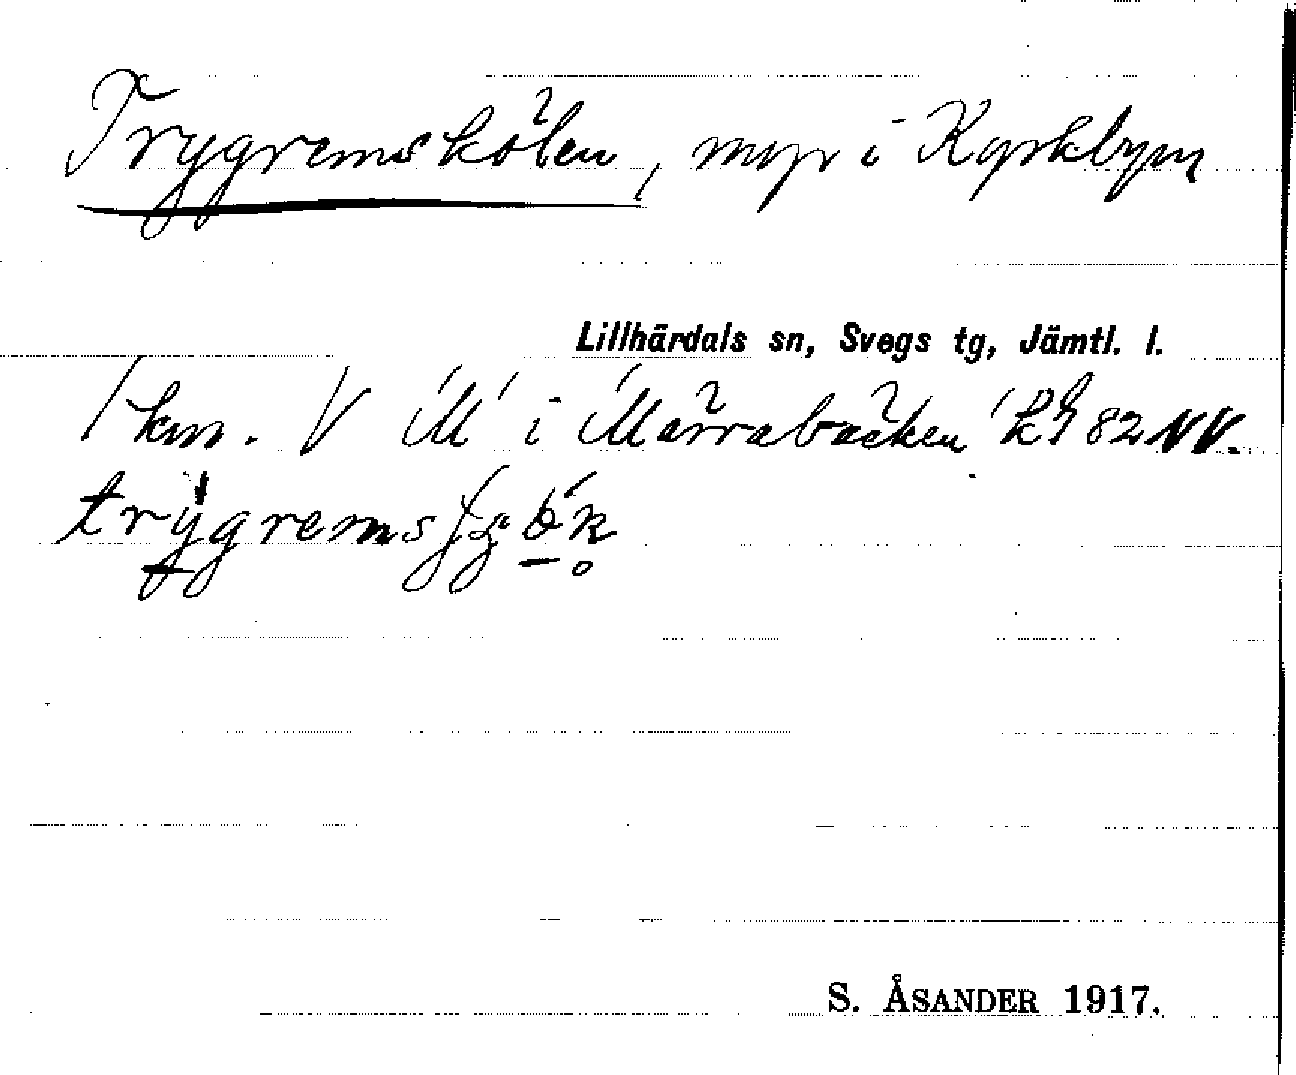 Trygremskölen, myr i Kyrkbyn
Lillhärdals sn, Svegs tg, Jämtl. l.
1 km. V "M" i "Märrabäcken" 82 NV.
trygrems
S. ÅSANDER 1917.